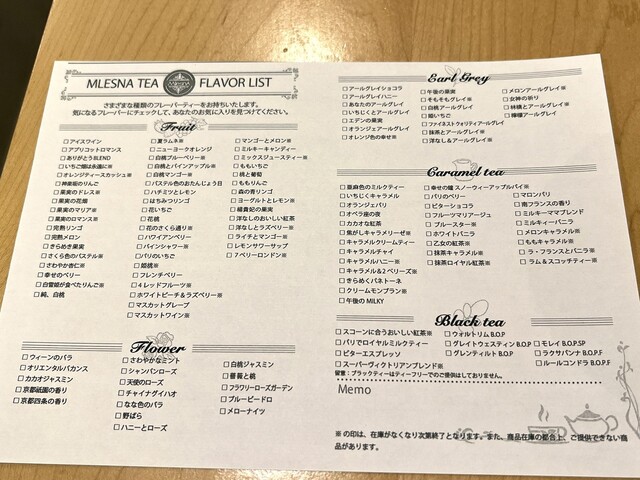 MLESNA TEA FLAVOR LIST
さまざまな種類のフレーバーティーをお持ちいたします。
気になるフレーバーにチェックして、あなたのお気に入りを見つけてください。
Fruit
□ アイスワイン
□ アプリコットロマンス
□ ありがとうBLEND
□ いちご畑は永遠に※
□ オレンジティースカッシュ※
□ 神楽姫のりんご
□ 果実のドレス※
□ 果実の花畑
□ 果実のマリア※
□ 果実のロマンス※
□ 完熟リンゴ
□ 完熟メロン
□ きらめき果実
□ さくら色のパステル※
□ さわやか杏仁※
□ 幸せのベリー
□ 白雪姫が食べたりんご※
□ 純、白桃
□ 夏ラムネ※
□ ニューヨークオレンジ
□ 白桃ブルーベリー※
□ 白桃とパインアップル※
□ 白桃マンゴー※
□ パステル色のおたんじょう日
□ ハチミツとレモン
□ はちみつリンゴ
□ 花いちご
□ 花桃
□ 花のさくら通り※
□ ハワイアンベリー
□ パインシャワー※
□ パリのいちご
□ 姫桃※
□ フレンチベリー
□ 4レッドフルーツ※
□ ホワイトピーチ＆ラズベリー※
□ マスカットグレープ
□ マスカットワイン※
□ マンゴーとメロン※
□ ミルキーキャンディー
□ ミックスジュースティー※
□ ももいちご
□ 桃と葡萄
□ ももりんご
□ 森の青リンゴ
□ ヨーグルトとレモン※
□ 綾貴妃の果実
□ 洋なしのおいしい紅茶
□ 洋なしとラズベリー※
□ ライチとマンゴー※
□ レモンサワーサップ
□ 7ベリーロンドン※
Flower
□ ウィーンのバラ
□ オリエンタルバカンス
□ カカオジャスミン
□ 京都祇園の香り
□ 京都四条の香り
□ さわやかなミント
□ シャンパンローズ
□ 天使のローズ
□ チャイナゲイハオ
□ なな色のバラ
□ 野ばら
□ ハニーとローズ
□ 白桃ジャスミン
□ 薔薇と桃
□ フラワリーローズガーデン
□ ブルーピードロ
□ メローナイツ
Earl Grey
□ アールグレイショコラ
□ アールグレイハニー
□ あなたのアールグレイ
□ いちじくとアールグレイ
□ エデンの果実
□ オランジェアールグレイ
□ オレンジ色の幸せ※
□ 午後の果実
□ そもそもグレイ※
□ 白桃アールグレイ
□ 姫いちご
□ ファイネストクォリティアールグレイ
□ 抹茶とアールグレイ※
□ 洋なし＆アールグレイ※
□ メロンアールグレイ※
□ 女神の祈り
□ 林檎とアールグレイ※
□ 檸檬アールグレイ
Caramel tea
□ 亜麻色のミルクティー
□ いちじくキャラメル
□ オランジェパリ
□ オペラ座の夜
□ カカオな紅茶
□ 焦がしキャラメリーゼ※
□ キャラメルクリームティー
□ キャラメルチャイ
□ キャラメルハニー※
□ キャラメル＆2ベリーズ※
□ きらめくパネトーネ
□ クリームモンブラン※
□ 午後のMILKY
□ 幸せの鐘 スノーウィーアップルパイ※
□ パリのベリー
□ ビターショコラ
□ フルーツマリアージュ
□ ブルースター※
□ ホワイトバニラ
□ 乙女の紅茶※
□ 抹茶キャラメル※
□ 抹茶ロイヤル紅茶※
□ マロンパリ
□ 南フランスの香り
□ ミルキーママブレンド
□ ミルキィーバニラ
□ メロンキャラメル※
□ ももキャラメル※
□ ラ・フランスとバニラ※
□ ラム＆スコッチティー※
Black tea
□ スコーンに合うおいしい紅茶※
□ パリでロイヤルミルクティー
□ ビターエスプレッソ
□ スーパーヴィクトリアンブレンド※
□ ウォルトリム B.O.P
□ グレイトウェスティン B.O.P
□ グレンティルト B.O.P
□ モレイ B.O.P.SP
□ ラクサパンナ B.O.P.F
□ ルールコンドラ B.O.P.F
留意：ブラックティーはティーフリーでのご提供はしておりません。
Memo
※ の印は、在庫がなくなり次第終了となります。また、商品在庫の都合上、ご提供できない商
品があります。